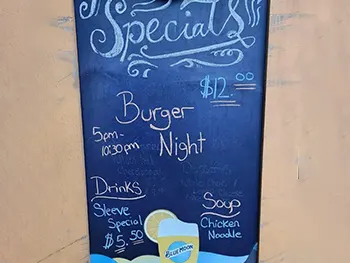 Specials
$12.00
Burger
5pm-
10:30pm
Night
Drinks
Sleeve
Special
$5.50
Soup
Chicken
Noodle
BLUE MOON